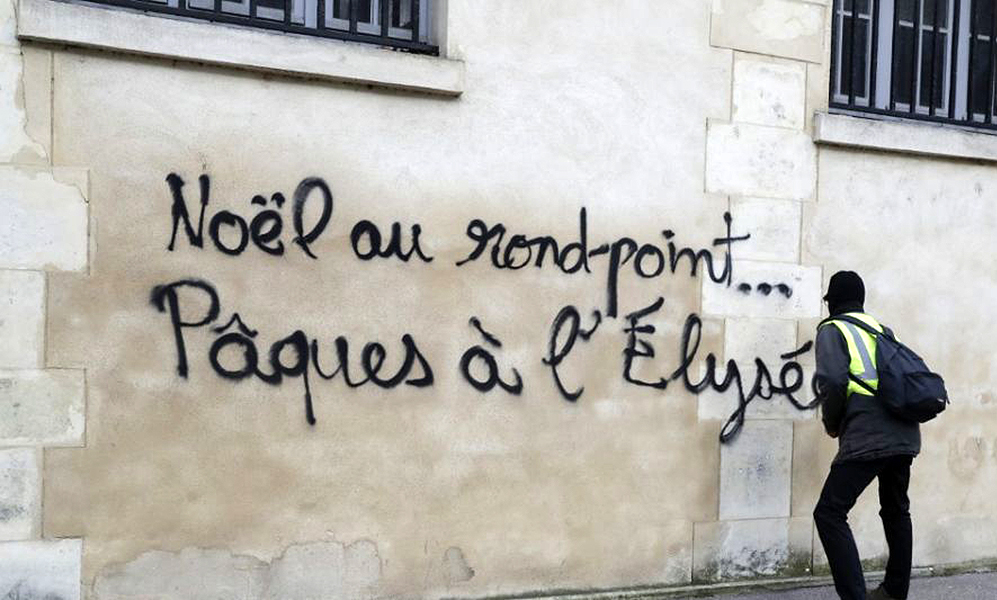 Noël au rond-point...
Pâques à l'Élysé